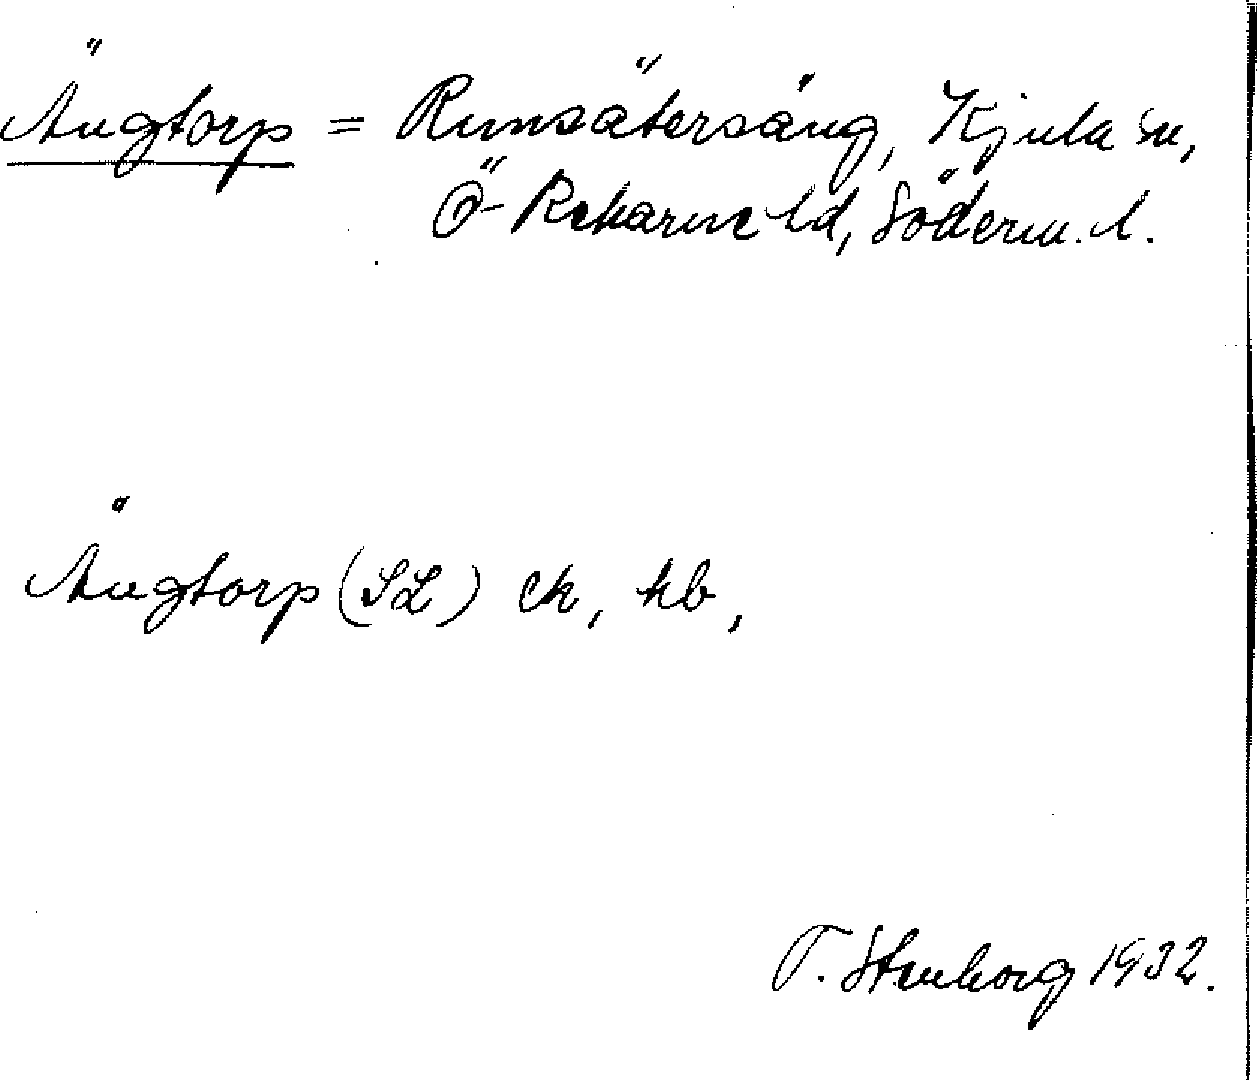 Ängtorp = Runsätersäng, Kjula sn,
Ö-Rekarne hd, Söderm. l.
Ängtorp (SL) ek, kb,
T. Stenborg 1932.